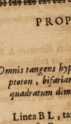 PROP
Omnis tangens hyp
ptoton, bifariam
quadratum dim
Linea BL, ta